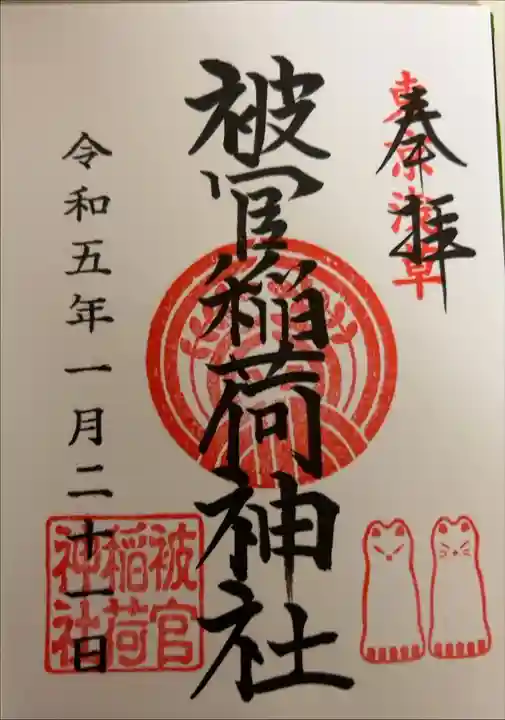 奉拝
東京浅草
被官稲荷神社
令和五年一月二十一日
被官
稲荷
神社